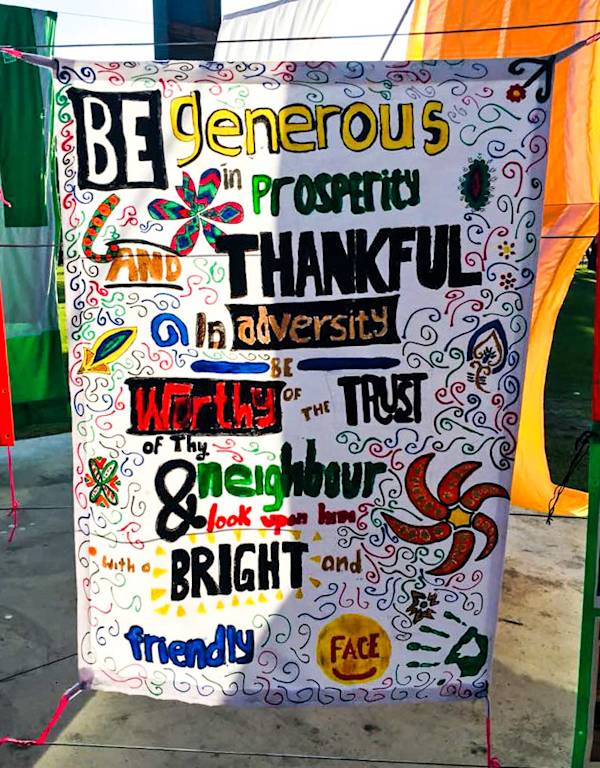 BE generous
in PrOSPERITY
AND THANKFUL
In adversity
BE
Worthy OF THE TRUST
of Thy
& neighbour
look upon him
with a BRIGHT and
friendly FACE